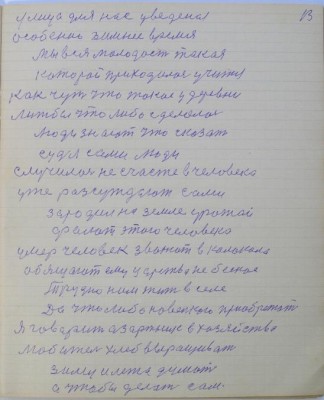 13
улица для нас уведена
особенно зимнее время
мы вся молодост такая
которой приходилос учится
как чут что такое у деревни
либо сделалос
люди знают что сказат
судя сами люди
случилос не счасте в человека
уже разсуждают сами
зародил на земле урожай
этого человека
умер человек звонят в колокола
обящают ему царство небесное
Трудно нам жит в селе
Да что либо приобретат
Я говарит азартник в хозяйстве
хлеб выращиват
зиму и лето думат
а чтобы делат сам.